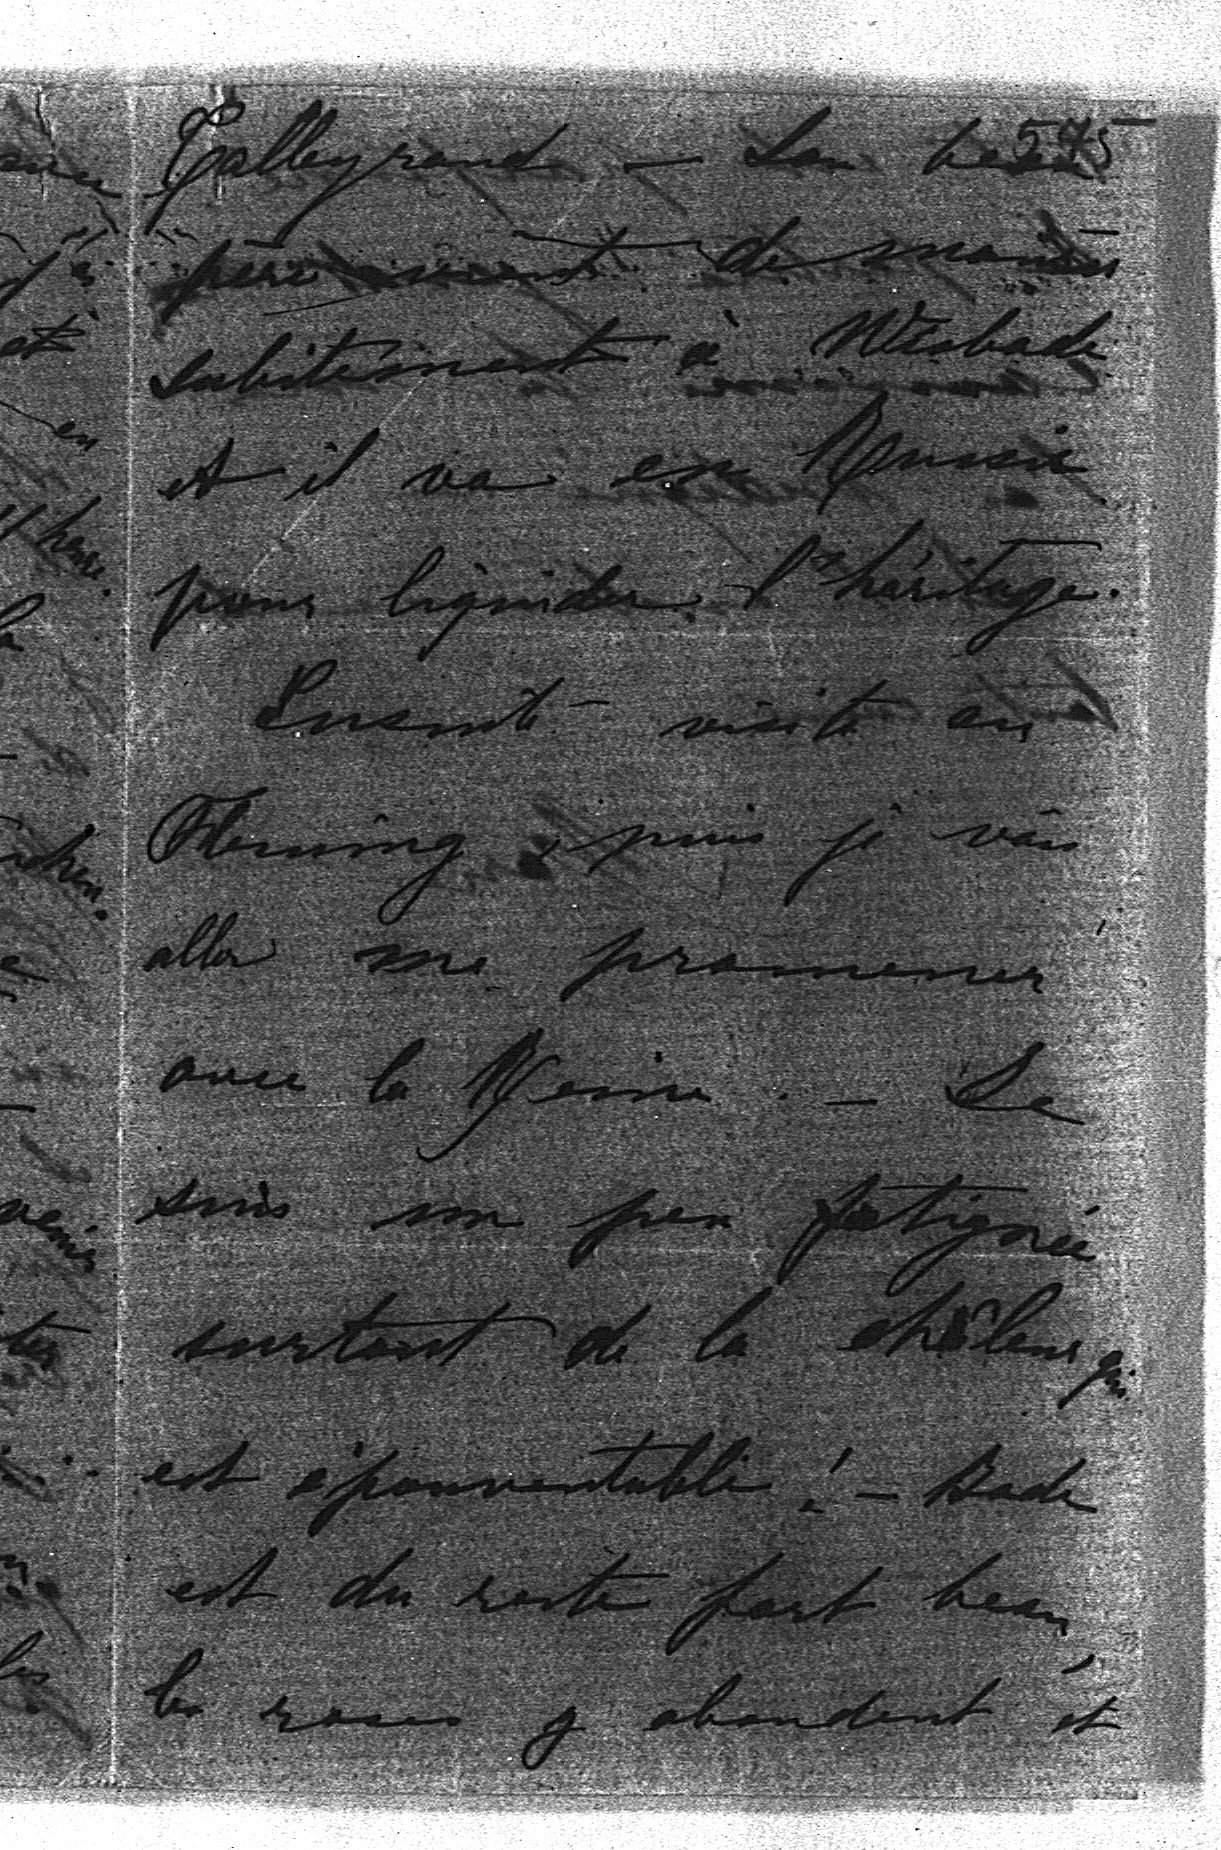 575
Talleyrand — Son beau
père vient de mourir
subitement à Wiesbade
et il va en Russie
pour liquider l'héritage.
Ensuite visite au
Fleming, puis je vais
aller me promener
avec la Reine. — Je
suis un peu fatiguée
surtout de la châleur qui
est épouventable! — Bade
est du reste fort beau,
les roses y abondent et